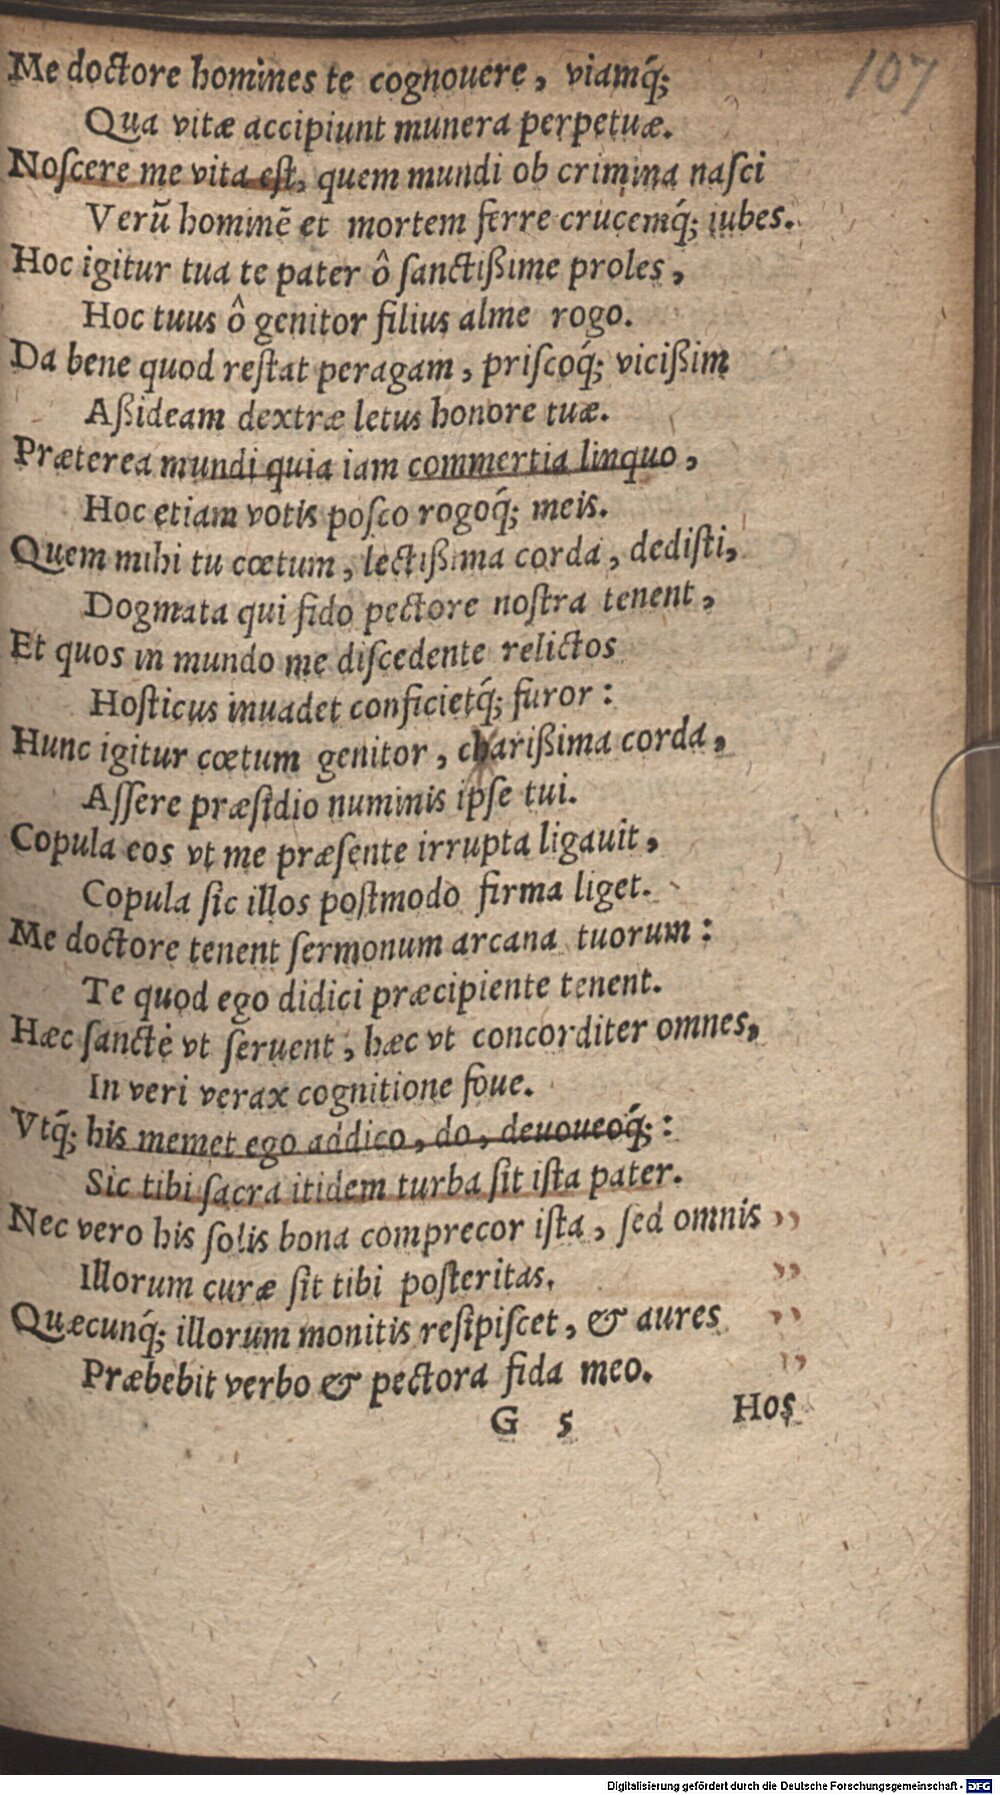 107
Me doctore homines te cognouere, viamq́;
Qua vitæ accipiunt munera perpetuæ.
Noſcere me vita eſt, quem mundi ob crimina naſci
Verũ hominẽ et mortem ferre crucemq́; iubes.
Hoc igitur tua te pater ô ſanctißime proles,
Hoc tuus ô genitor filius alme rogo.
Da bene quod reſtat peragam, priſcoq́; vicißim
Aßideam dextræ letus honore tuæ.
Præterea mundi quia iam commertia linquo,
Hoc etiam votis poſco rogoq́; meis.
Quem mihi tu cœtum, lectißima corda, dediſti,
Dogmata qui fido pectore noſtra tenent,
Et quos in mundo me diſcedente relictos
Hoſticus inuadet conficietq́; furor:
Hunc igitur cœtum genitor, charißima corda,
Aſſere præſidio numinis ipſe tui.
Copula eos vt me præſente irrupta ligauit,
Copula ſic illos poſtmodo firma liget.
Me doctore tenent ſermonum arcana tuorum:
Te quod ego didici præcipiente tenent.
Hæc ſanctè vt ſeruent, hæc vt concorditer omnes,
In veri verax cognitione foue.
Vtq́; his memet ego addico, do, deuoueoq́;:
Sic tibi ſacra itidem turba ſit iſta pater.
Nec vero his ſolis bona comprecor iſta, ſed omnis ,,
Illorum curæ ſit tibi poſteritas. ,,
Quæcunq́; illorum monitis reſipiſcet, & aures ,,
Præbebit verbo & pectora fida meo. ,,
G 5 Hos
Digitalisierung gefördert durch die Deutsche Forschungsgemeinschaft - DFG